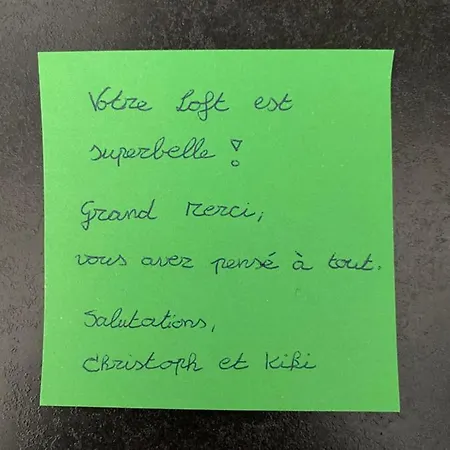 Votre Loft est
superbelle !
Grand Merci,
vous avez pensé à tout.
Salutations,
Christoph et Kiki